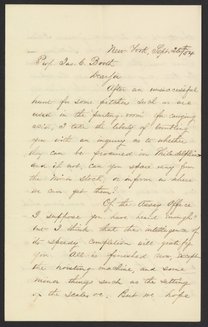 New York, Sept. 25th/54
Prof. Jas. C. Booth
Dear Sir
After an unsuccessful
hunt for some pitchers such as are
used in the parting-room for carrying
acid, I take the liberty of troubling
you with an inquiry as to whether
they can be procured in Philadelphia
and if not, can you spare any from
the Mint stock, or inform us where
we can get them?
Of the Assay Office
I suppose you have heard enough
but I think that the intelligence of
its speedy completion will gratify
you. All is finished now except
the hoisting machine, and some
minor things such as the setting
of the scales &c. But we hope